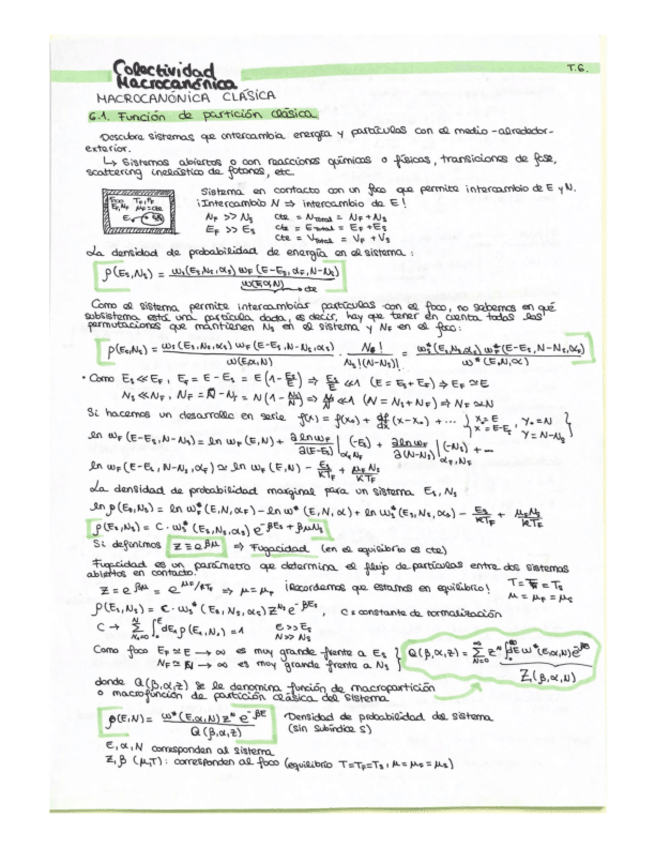 Colectividad
Macrocanónica
T.6.
MACROCANÓNICA CLÁSICA
6.1. Función de partición clásica
Describe sistemas que intercambia energía y partículas con el medio -alrededor-
exterior.
↳ Sistemas abiertos o con reacciones químicas o físicas, transiciones de fase,
scattering inelástico de fotones, etc.
Sistema en contacto con un foco que permite intercambio de E y N.
¡Intercambio N ⇒ intercambio de E!
N_F >> N_S cte = N_Total = N_F + N_S
E_F >> E_S cte = E_Total = E_F + E_S
cte = V_Total = V_F + V_S
La densidad de probabilidad de energía en el sistema:
ρ(E_S,N_S) = ω_S(E_S,N_S,α_S) ω_F(E-E_S,α_F,N-N_S) / ω(E,α,N) → cte
Como el sistema permite intercambiar partículas con el foco, no sabemos en qué
subsistema está una partícula dada, es decir, hay que tener en cuenta todas las
permutaciones que mantienen N_S en el sistema y N_F en el foco:
• Como E_S << E_F, E_F = E - E_S = E(1 - E_S/E) ⇒ E_S/E << 1 (E = E_S + E_F) ⇒ E_F ≃ E
⇒ N_S/N << 1 (N = N_S + N_F) ⇒ N_F ≃ N
Si hacemos un desarrollo en serie f(x) = f(x_0) + df/dx (x - x_0) + ...
La densidad de probabilidad marginal para un sistema E_S, N_S
ρ(E_S,N_S) = C · ω_S^*(E_S,N_S,α_S) e^{-βE_S + βμN_S}
Si definimos z ≡ e^{βμ} ⇒ Fugacidad (en el equilibrio es cte)
Fugacidad es un parámetro que determina el flujo de partículas entre dos sistemas
abiertos en contacto.
z = e^{βμ} = e^{μ_F/kT_F} ⇒ μ = μ_F ¡Recordemos que estamos en equilibrio! T = T_F = T_S
μ = μ_F = μ_S
ρ(E_S,N_S) = C · ω_S^*(E_S,N_S,α_S) z^{N_S} e^{-βE_S}, C ≡ constante de normalización
Como foco E_F ≃ E → ∞ es muy grande frente a E_S
N_F ≃ N → ∞ es muy grande frente a N_S
Q(β,α,z) = Σ_{N=0}^∞ z^N ∫_0^∞ dE ω^*(E,α,N) e^{-βE}
Z(β,α,N)
donde Q(β,α,z) se le denomina función de macropartición
o macrofunción de partición clásica del sistema
ρ(E,N) = ω^*(E,α,N) z^N e^{-βE} / Q(β,α,z)
Densidad de probabilidad del sistema
(sin subíndice S)
E, α, N corresponden al sistema
z, β (μ,T): corresponden al foco (equilibrio T=T_F=T_S, μ=μ_F=μ_S)